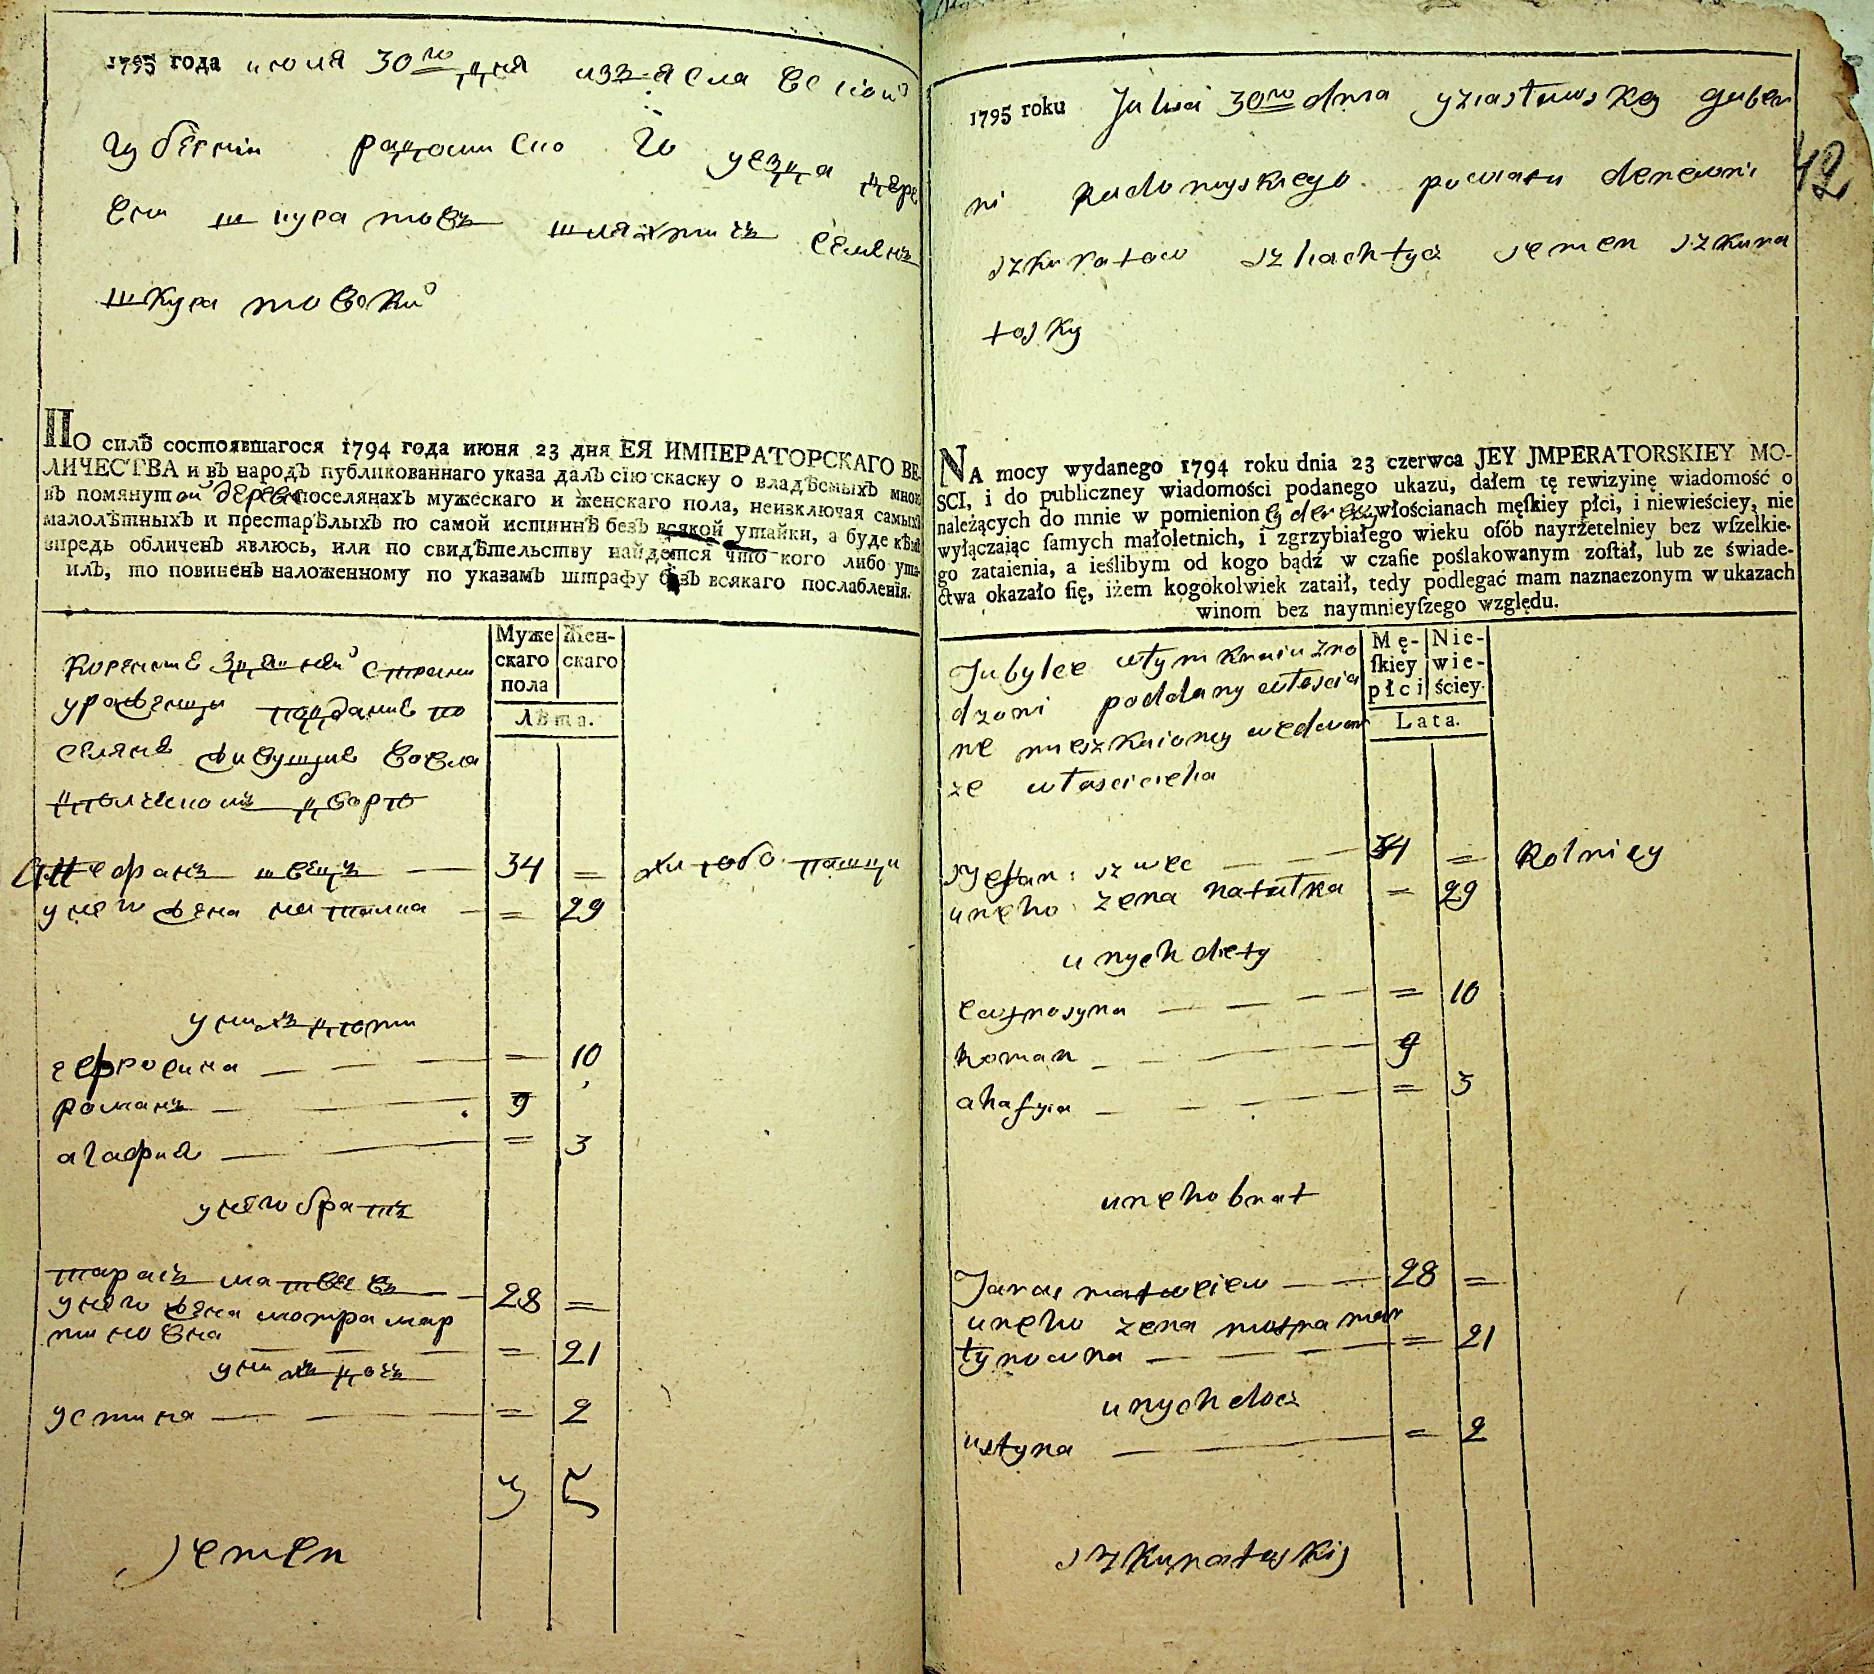 1795 года июля 30го дня изъяславской
губерніи радомиского уезда дере
вни шкуратовъ шляхтичъ семенъ
шкуратовски
ПО силѣ состоявшагося 1794 года июня 23 дня ЕЯ ИМПЕРАТОРСКАГО ВЕ-
ЛИЧЕСТВА и въ народъ публикованнаго указа далъ сію скаску о владѣемыхъ мною
въ помянутой деревне поселянахъ мужескаго и женскаго пола, неизключая самыхъ
малолѣтныхъ и престарѣлыхъ по самой истиннѣ безъ всякой утайки, а буде кѣмъ
впредь обличенъ явлюсь, или по свидѣтельству найдется что кого либо ута-
илъ, то повиненъ наложенному по указамъ штрафу безъ всякаго послабленія.
Муже
скаго
пола
Жен-
скаго
Лѣта.
коренние здешней страни
уроженци поддание по
селяне живущие
дворѣ
Стефанъ швецъ 34 =
у него жена наталка = 29
у нихъ дѣти
ефросина = 10
романъ 9
агафия = 3
у него братъ
тарасъ матвеевъ 28 =
у него жена мотра мар
тиновна = 21
у нихъ дочъ
устина = 2
3 5
хлѣбопашци
Jemen
1795 roku Julia 30go dnia yziasławskey guber
ni Radomyskiego powiatu derewni
szkuratow szlachtycz semen szkura
tosky
NA mocy wydanego 1794 roku dnia 23 czerwca JEY JMPERATORSKIEY MO-
SCI, i do publiczney wiadomości podanego ukazu, dałem tę rewizyinę wiadomość o
należących do mnie w pomienioney derewny włościanach męſkiey płci, i niewieściey, nie
wyłączając ſamych małoletnich, i zgrzybiałego wieku oſób nayrżetelniey bez wſzelkie-
go zataienia, a ieślibym od kogo bądź w czaſie poślakowanym zoſtał, lub ze świade-
ctwa okazało ſię, iżem kogokolwiek zataił, tedy podlegać mam naznaczonym w ukazach
winom bez naymnieyſzego względu.
Mę-
ſkiey
płci
Nie-
wie-
ściey.
Lata.
Jubylee wtym kraiu zro
dzoni poddany włoscia
ne mieszkaiomcy wedwor
ze własciciela
styefan szwec 34 =
uneho zena natałka = 29
unych diety
ewfrosyna = 10
Roman 9
ahafyia = 3
uneho brat
Taras matweiew 28 =
uneho zena motra mar
tynowna = 21
unych docz
ustyna = 2
Rolnicy
szkuratuskij
42